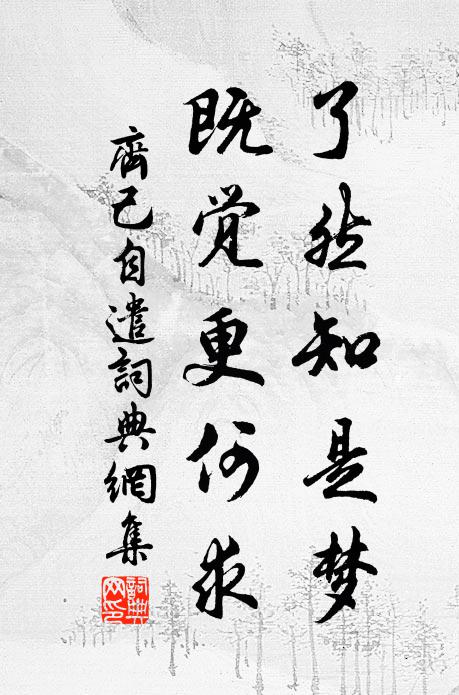 了然知是梦
既觉更何求
齊己自遣詞典網集
詞典网印